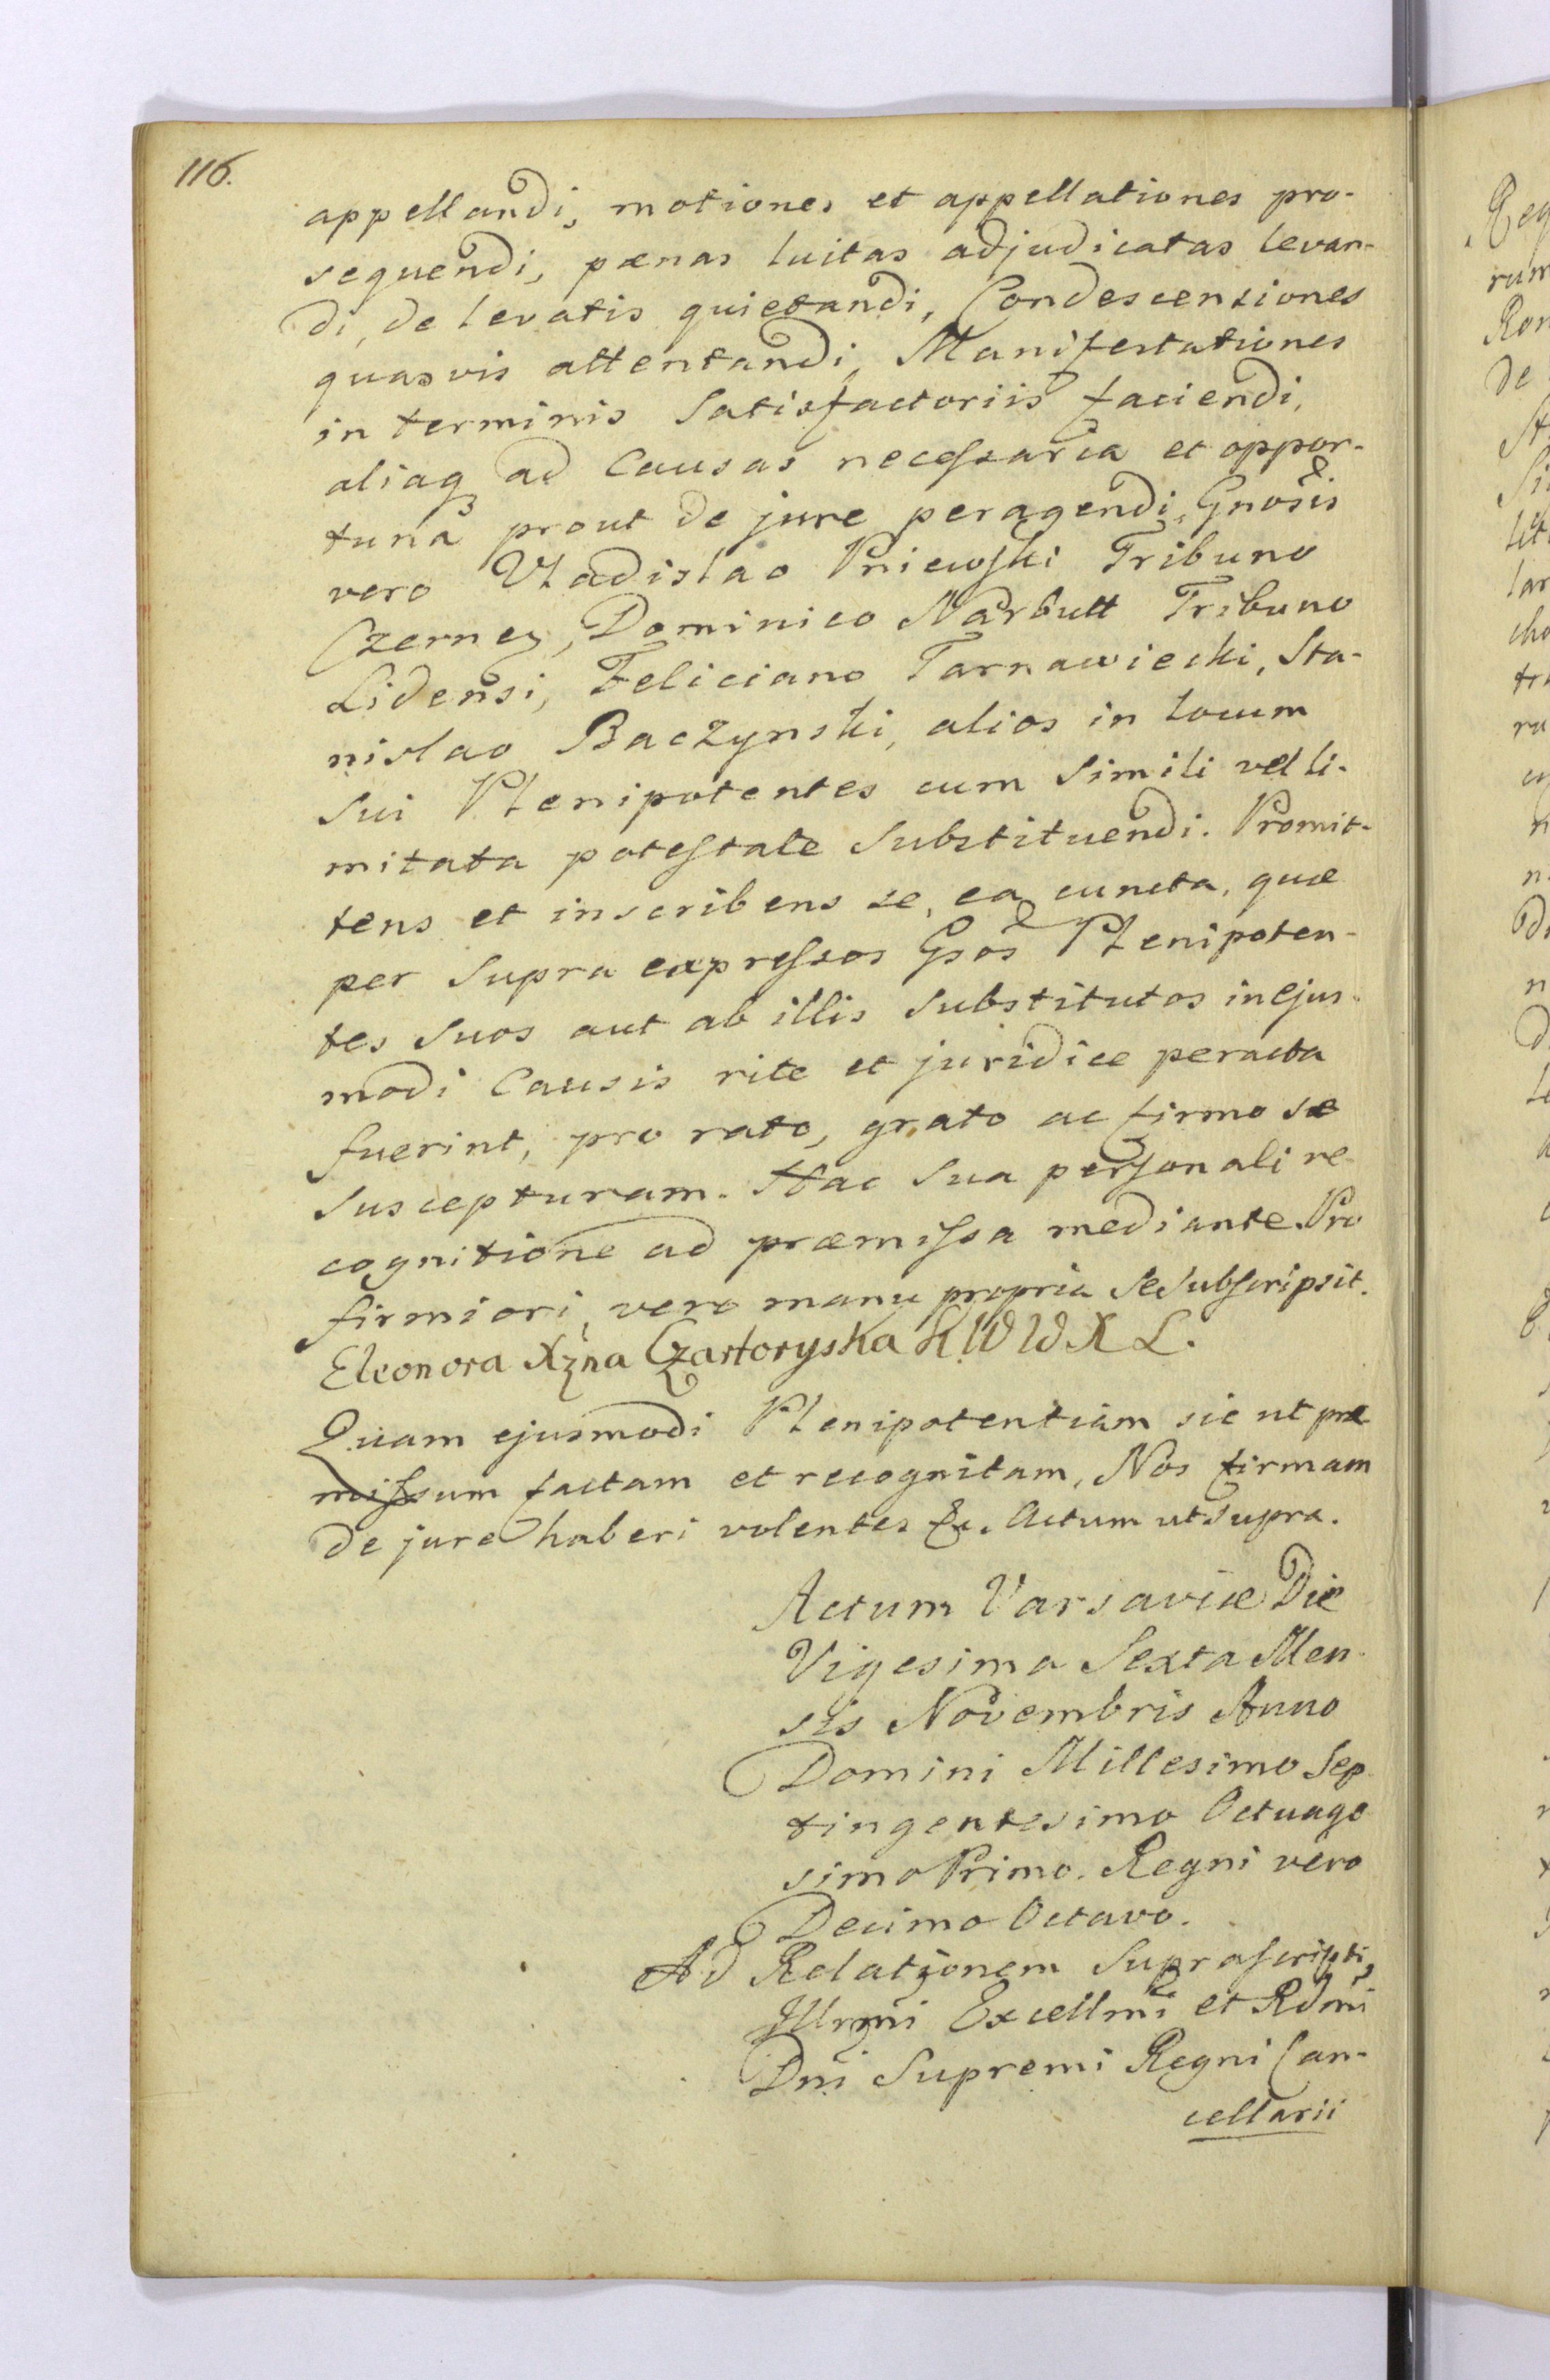 116.
appellandi, motiones et appellationes pro-
sequendi, pænas luitas adjudicatas levan-
di, de levatis quietandi, Condescensiones
quasvis attentandi, Manifestationes
in terminis Satisfactoriis faciendi,
aliaq ad Causas necessaria et oppor-
tuna prout de jure peragendi, Gnosis
vero Vladislao Pniewski Tribuno
Czernen, Dominico Narbutt Tribuno
Lidensi, Feliciano Tarnawiecki, Sta-
nislao Baczynski, alios in locum
Sui Plenipotentes cum Simili vel li-
mitata potestate Substituendi. Promit-
tens et inscribens se, ea cuncta, quæ
per Supra expressos Gsos Plenipoten-
tes Suos aut ab illis Substitutos in ejus-
modi Causis rite et juridice peracta
fuerint, pro rato, grato ac firmo se
Suscepturam. Hac Sua personali re
cognitione ad præmissa mediante. Pro
firmiori vero manu propria Se Subscripsit.
Eleonora Xżna Czartoryska K W W X L.
Quam ejusmodi Plenipotentiam sic ut præ
missum factam et recognitam, Nos firmam
de jure haberi volentes &c. Actum ut Supra.
Actum Varsaviæ Die
Vigesima Sexta Men-
sis Novembris Anno
Domini Millesimo Sep
tingentesimo Octuage
simo Primo. Regni vero
Decimo Octavo.
Ad Relationem Suprascripti,
Illrmi Excellmi et Rdmi
Dni Supremi Regni Can-
cellarii